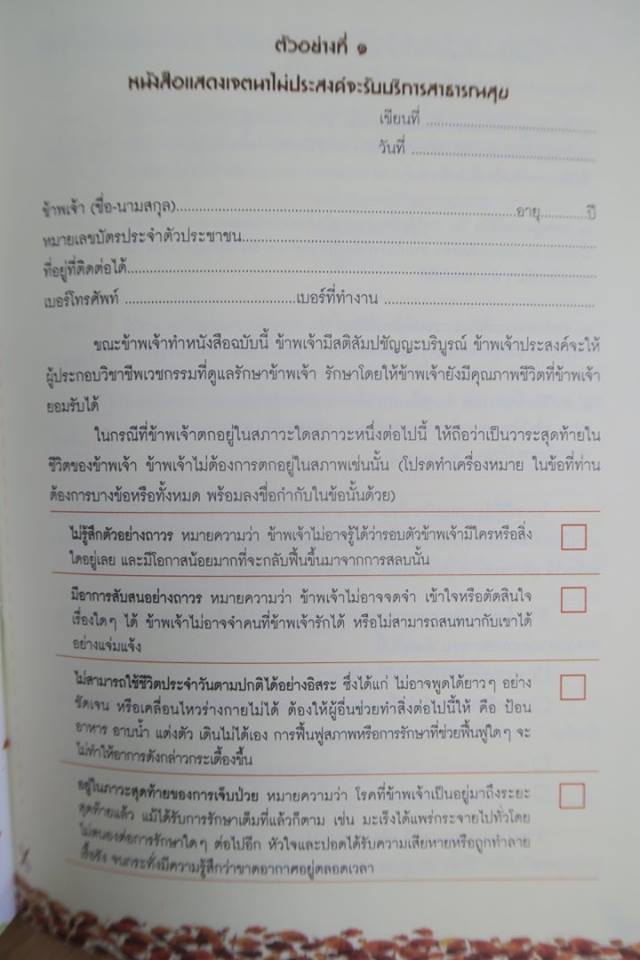 ตัวอย่างที่ ๑
หนังสือแสดงเจตนาไม่ประสงค์จะรับบริการสาธารณสุข
เขียนที่ ..............................
วันที่ ..............................
ข้าพเจ้า (ชื่อ-นามสกุล)..............................อายุ...........ปี
หมายเลขบัตรประจำตัวประชาชน..............................
ที่อยู่ที่ติดต่อได้..............................
เบอร์โทรศัพท์ ..............................เบอร์ที่ทำงาน ..............................
ขณะข้าพเจ้าทำหนังสือฉบับนี้ ข้าพเจ้ามีสติสัมปชัญญะบริบูรณ์ ข้าพเจ้าประสงค์จะให้
ผู้ประกอบวิชาชีพเวชกรรมที่ดูแลรักษาข้าพเจ้า รักษาโดยให้ข้าพเจ้ายังมีคุณภาพชีวิตที่ข้าพเจ้า
ยอมรับได้
ในกรณีที่ข้าพเจ้าตกอยู่ในสภาวะใดสภาวะหนึ่งต่อไปนี้ ให้ถือว่าเป็นวาระสุดท้ายใน
ชีวิตของข้าพเจ้า ข้าพเจ้าไม่ต้องการตกอยู่ในสภาพเช่นนั้น (โปรดทำเครื่องหมาย ในข้อที่ท่าน
ต้องการบางข้อหรือทั้งหมด พร้อมลงชื่อกำกับในข้อนั้นด้วย)
ไม่รู้สึกตัวอย่างถาวร หมายความว่า ข้าพเจ้าไม่อาจรู้ได้ว่ารอบตัวข้าพเจ้ามีใครหรือสิ่ง
ใดอยู่เลย และมีโอกาสน้อยมากที่จะกลับฟื้นขึ้นมาจากการสลบนั้น
มีอาการสับสนอย่างถาวร หมายความว่า ข้าพเจ้าไม่อาจจดจำ เข้าใจหรือตัดสินใจ
เรื่องใดๆ ได้ ข้าพเจ้าไม่อาจจำคนที่ข้าพเจ้ารักได้ หรือไม่สามารถสนทนากับเขาได้
อย่างแจ่มแจ้ง
ไม่สามารถใช้ชีวิตประจำวันตามปกติได้อย่างอิสระ ซึ่งได้แก่ ไม่อาจพูดได้ยาวๆ อย่าง
ชัดเจน หรือเคลื่อนไหวร่างกายไม่ได้ ต้องให้ผู้อื่นช่วยทำสิ่งต่อไปนี้ให้ คือ ป้อน
อาหาร อาบน้ำ แต่งตัว เดินไม่ได้เอง การฟื้นฟูสภาพหรือการรักษาที่ช่วยฟื้นฟูใดๆ จะ
ไม่ทำให้อาการดังกล่าวกระเตื้องขึ้น
อยู่ในภาวะสุดท้ายของการเจ็บป่วย หมายความว่า โรคที่ข้าพเจ้าเป็นอยู่มาถึงระยะ
สุดท้ายแล้ว แม้ได้รับการรักษาเต็มที่แล้วก็ตาม เช่น มะเร็งได้แพร่กระจายไปทั่วโดย
ไม่ตอบสนองต่อการรักษาใดๆ ต่อไปอีก หัวใจและปอดได้รับความเสียหายหรือถูกทำลาย
เรื้อรัง จนกระทั่งมีความรู้สึกว่าขาดอากาศอยู่ตลอดเวลา